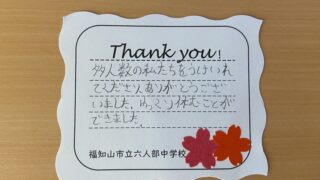 Thank you!
多人数の私たちをうけいれ
てくださりありがとうござ
いました。ゆっくり休むことが
できました。
福知山市立六人部中学校